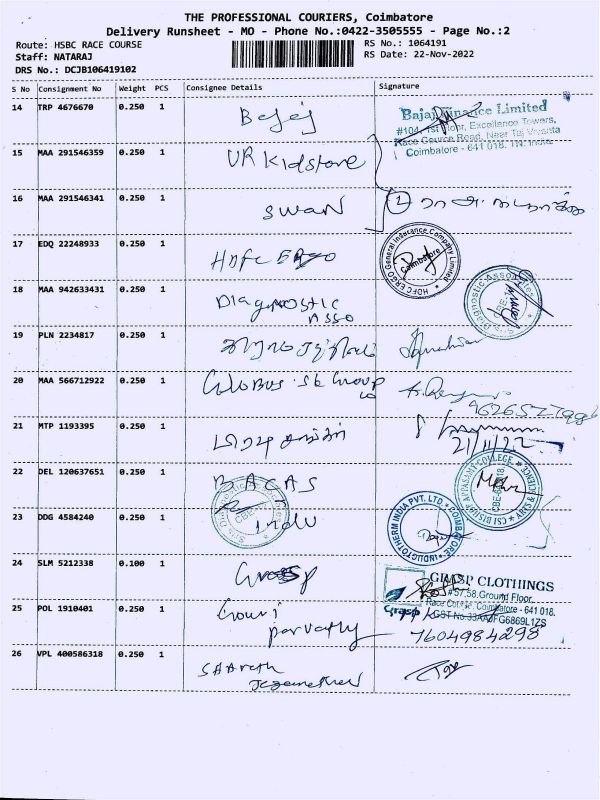 THE PROFESSIONAL COURIERS, Coimbatore
Delivery Runsheet - MO - Phone No.:0422-3505555 - Page No.:2
Route: HSBC RACE COURSE
RS No.: 1064191
Staff: NATARAJ
RS Date: 22-Nov-2022
DRS No.: DCJB106419102
S No Consignment No Weight PCS Consignee Details Signature
14 TRP 4676670 0.250 1 Bajaj
Bajaj Finance Limited
#104, 1st Floor, Excellence Towers,
Race Course Road, Near Taj Vivanta
Coimbatore - 641 018. TN. India
15 MAA 291546359 0.250 1 UR Kidstore
16 MAA 291546341 0.250 1 SWAN
17 EDQ 22248933 0.250 1 HDFC ERGO
HDFC ERGO General Insurance Company Limited
Coimbatore
18 MAA 942633431 0.250 1 Diagnostic
ASSO
19 PLN 2234817 0.250 1
20 MAA 566712922 0.250 1 Globus Group
21 MTP 1193395 0.250 1
21/11/22
22 DEL 120637651 0.250 1 BACAS
CSI BISHOP APPASAMY COLLEGE OF ARTS & SCIENCE
23 DDG 4584240 0.250 1 indu
INDUCTOTHERM INDIA PVT. LTD. COIMBATORE
24 SLM 5212338 0.100 1 Grasp
GRASP CLOTHINGS
#57,58, Ground Floor,
Race Course, Coimbatore - 641 018.
Grasp
25 POL 1910401 0.250 1 Gowri
parvathy
7604984298
26 VPL 400586318 0.250 1 SHARATH